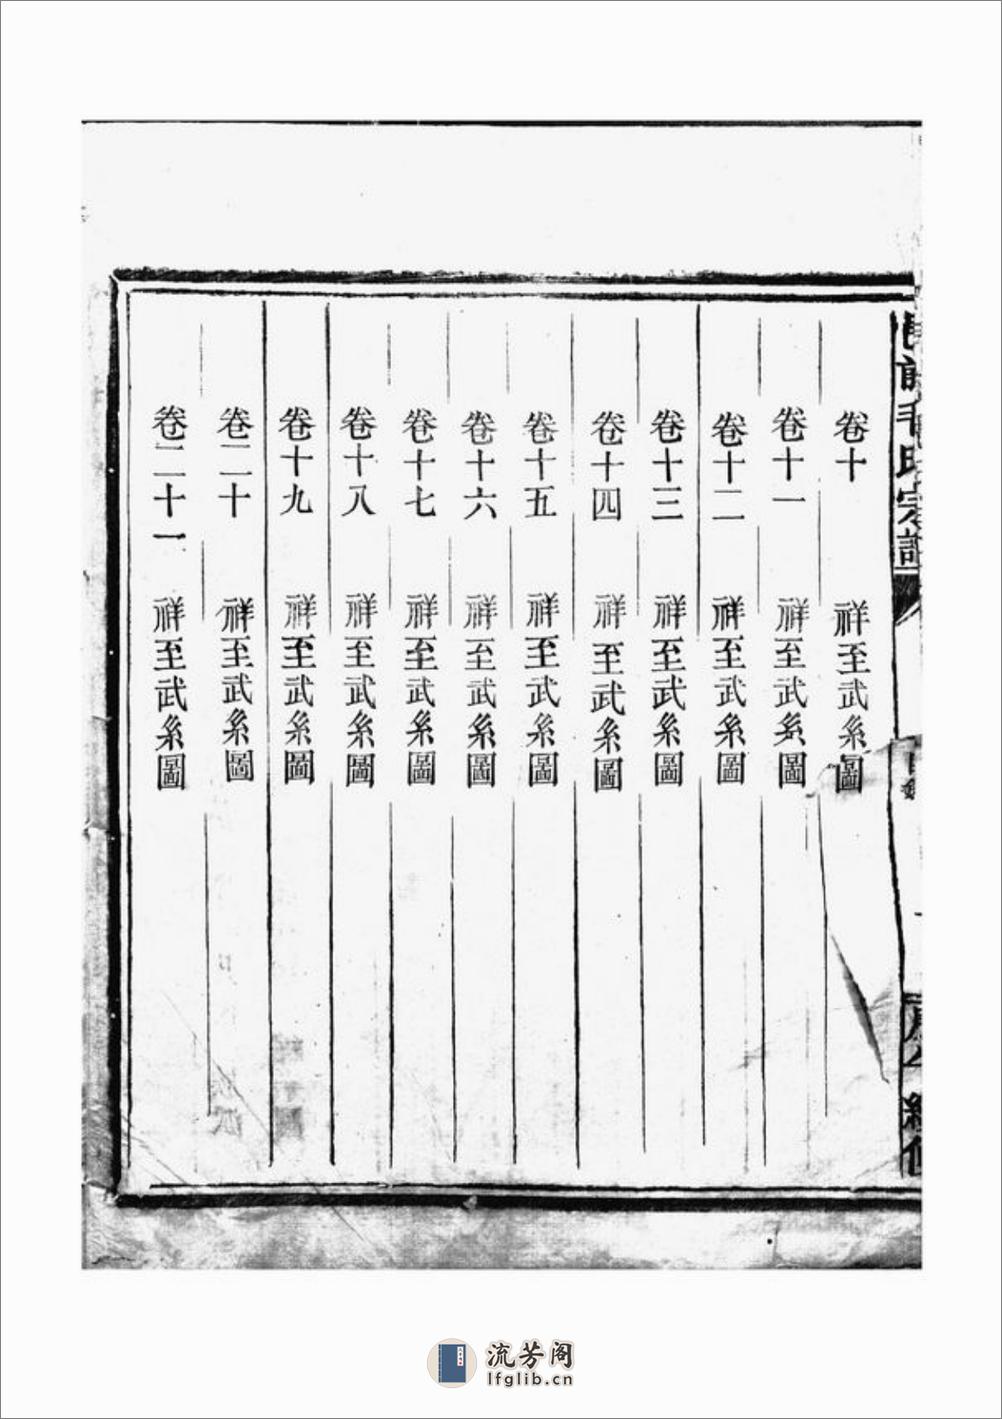 毛氏宗譜
卷十 祥至武系圖
卷十一 祥至武系圖
卷十二 祥至武系圖
卷十三 祥至武系圖
卷十四 祥至武系圖
卷十五 祥至武系圖
卷十六 祥至武系圖
卷十七 祥至武系圖
卷十八 祥至武系圖
卷十九 祥至武系圖
卷二十 祥至武系圖
卷二十一 祥至武系圖
流芳阁
lfglib.cn